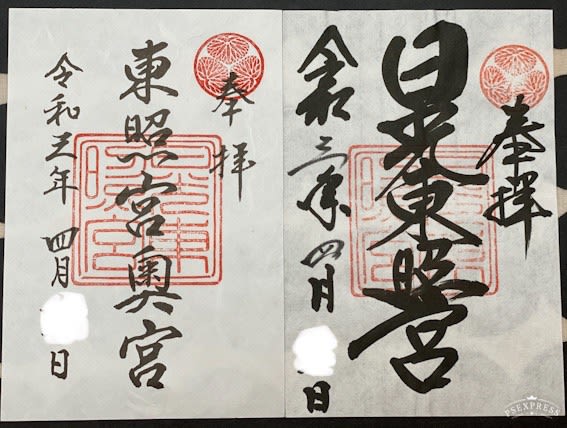 奉拝
日光東照宮
令和三年四月 日
奉拝
東照宮奥宮
令和三年 四月 日
PSEXPRESS